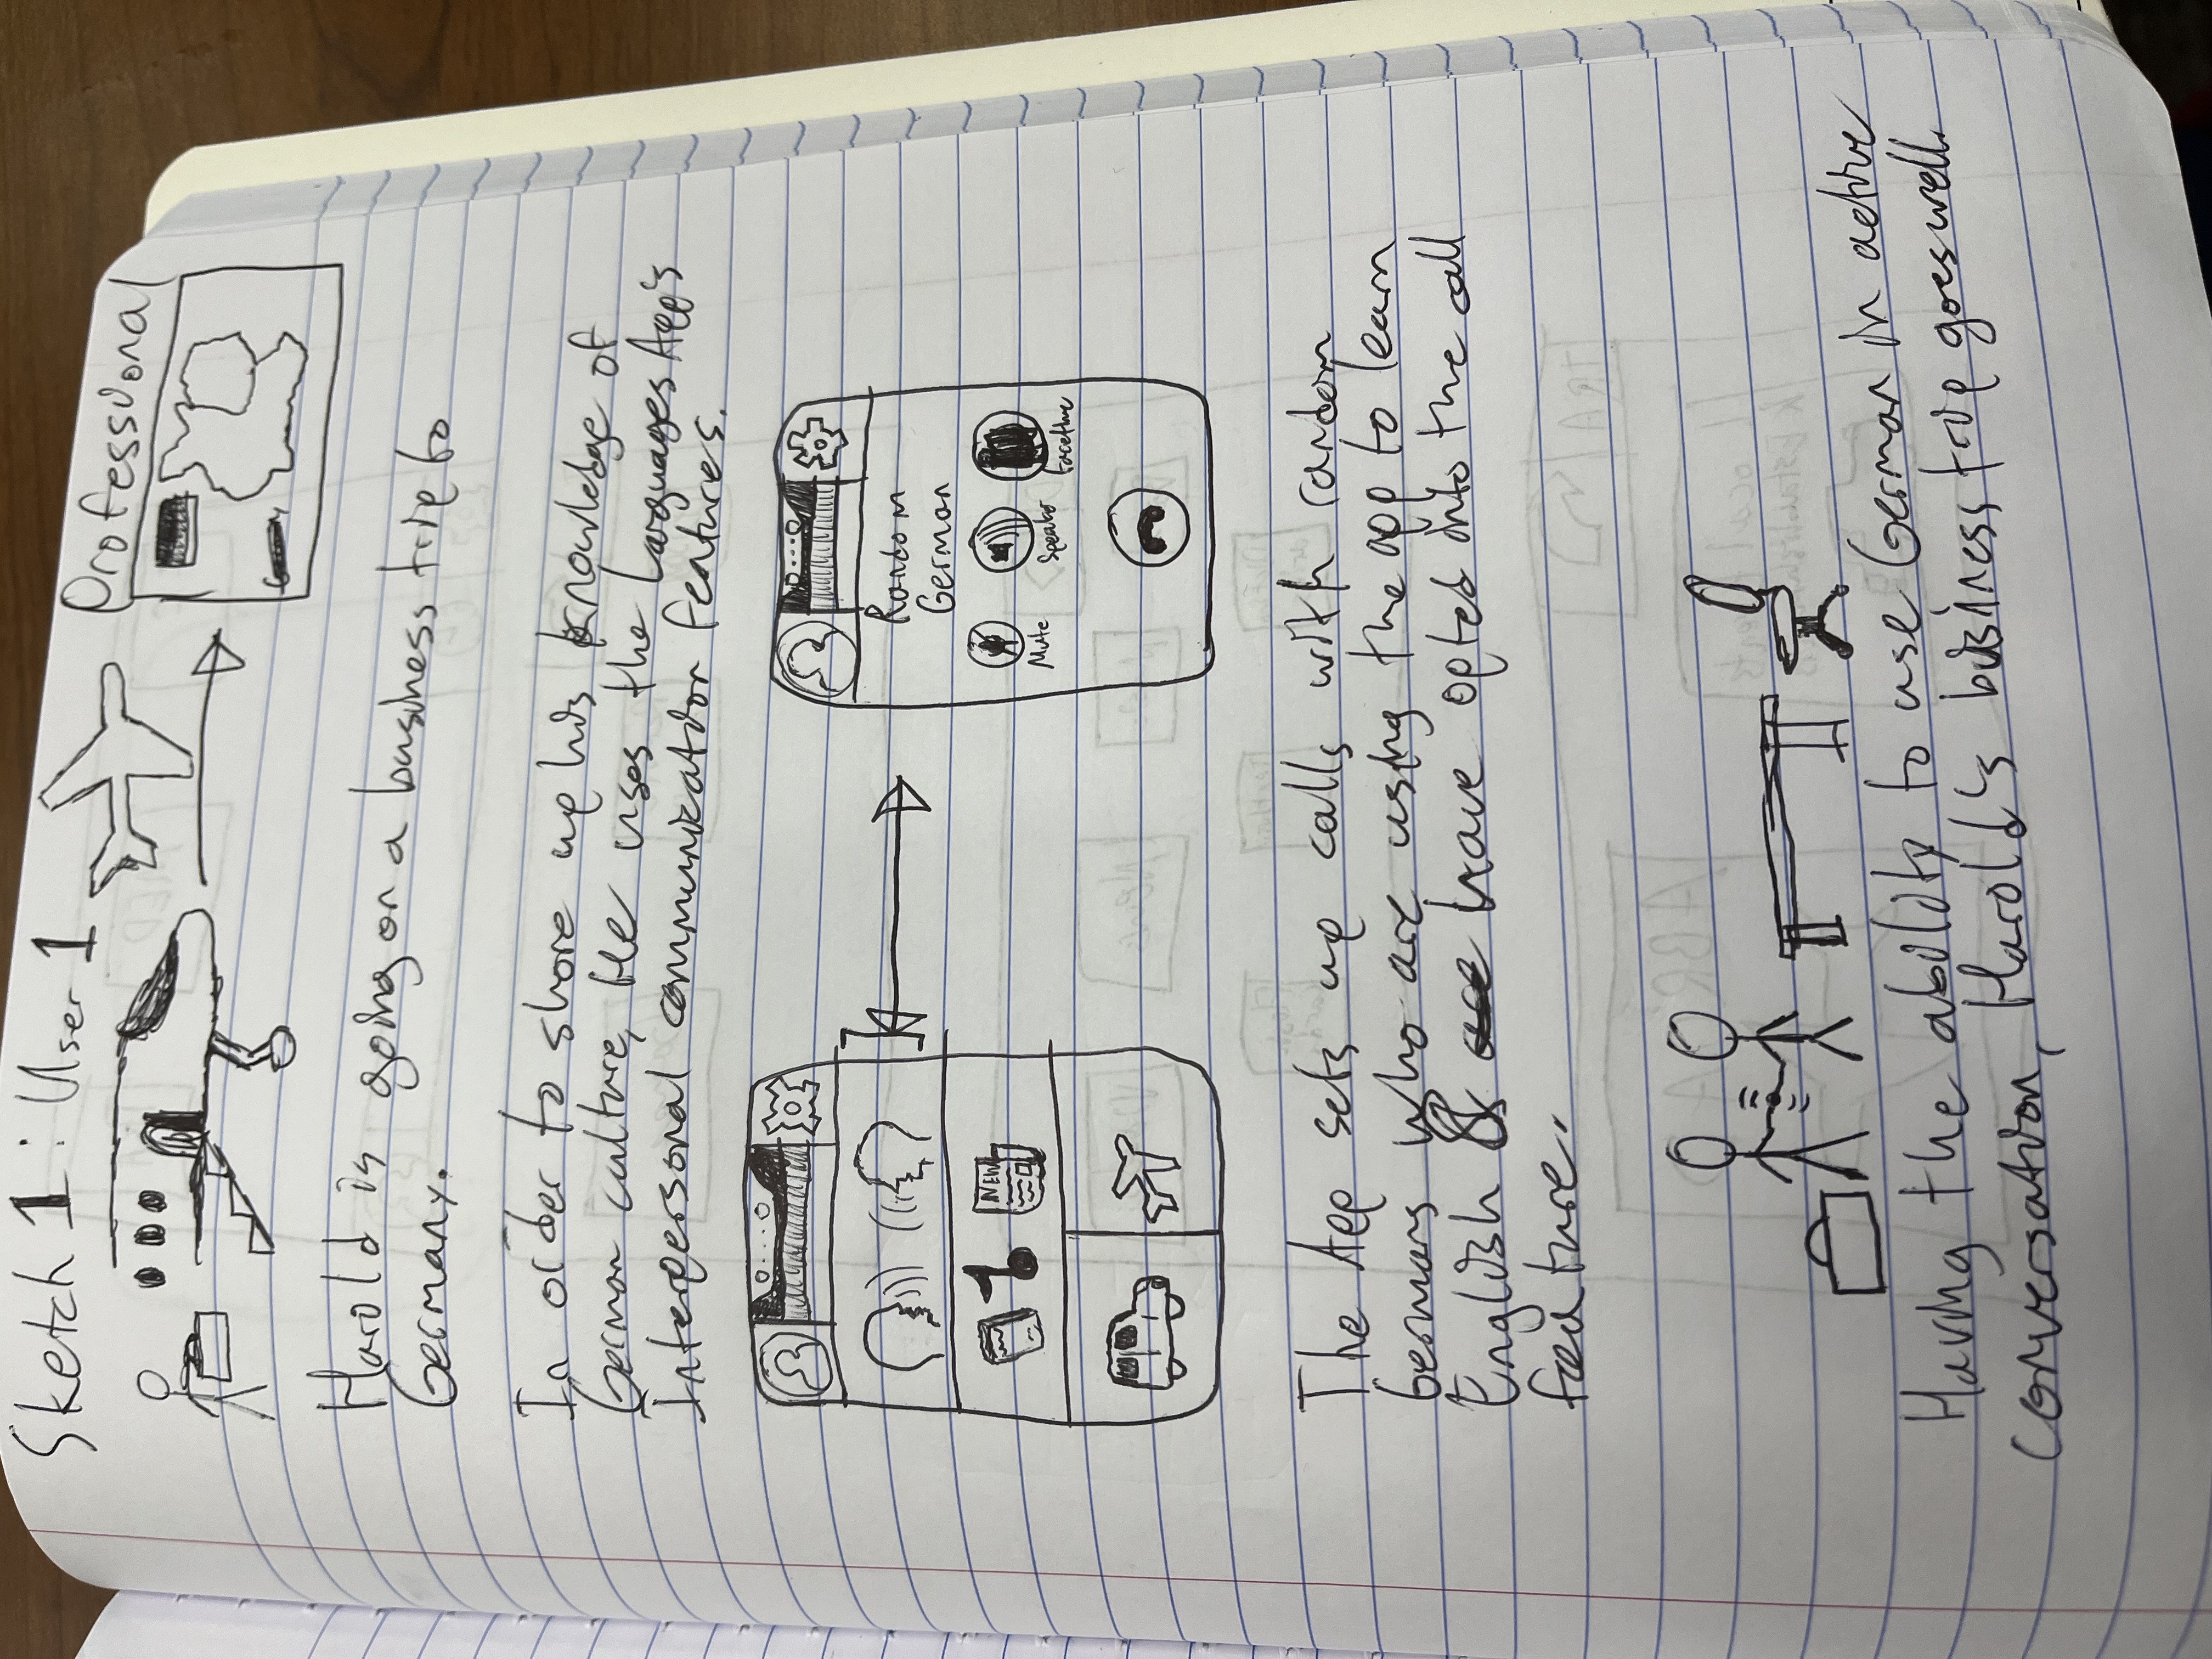 Sketch 1: User 1
Professional
Harold is going on a business trip to
Germany.
In order to shore up his knowledge of
German culture, He uses the Languages App's
Interpersonal communication features.
NEWS
Random
German
Mute
Speaker
facetime
The App sets up calls with random
Germans who are using the app to learn
English & have opted into the call
feature.
Having the ability to use German in active
conversation, Harold's business trip goes well.